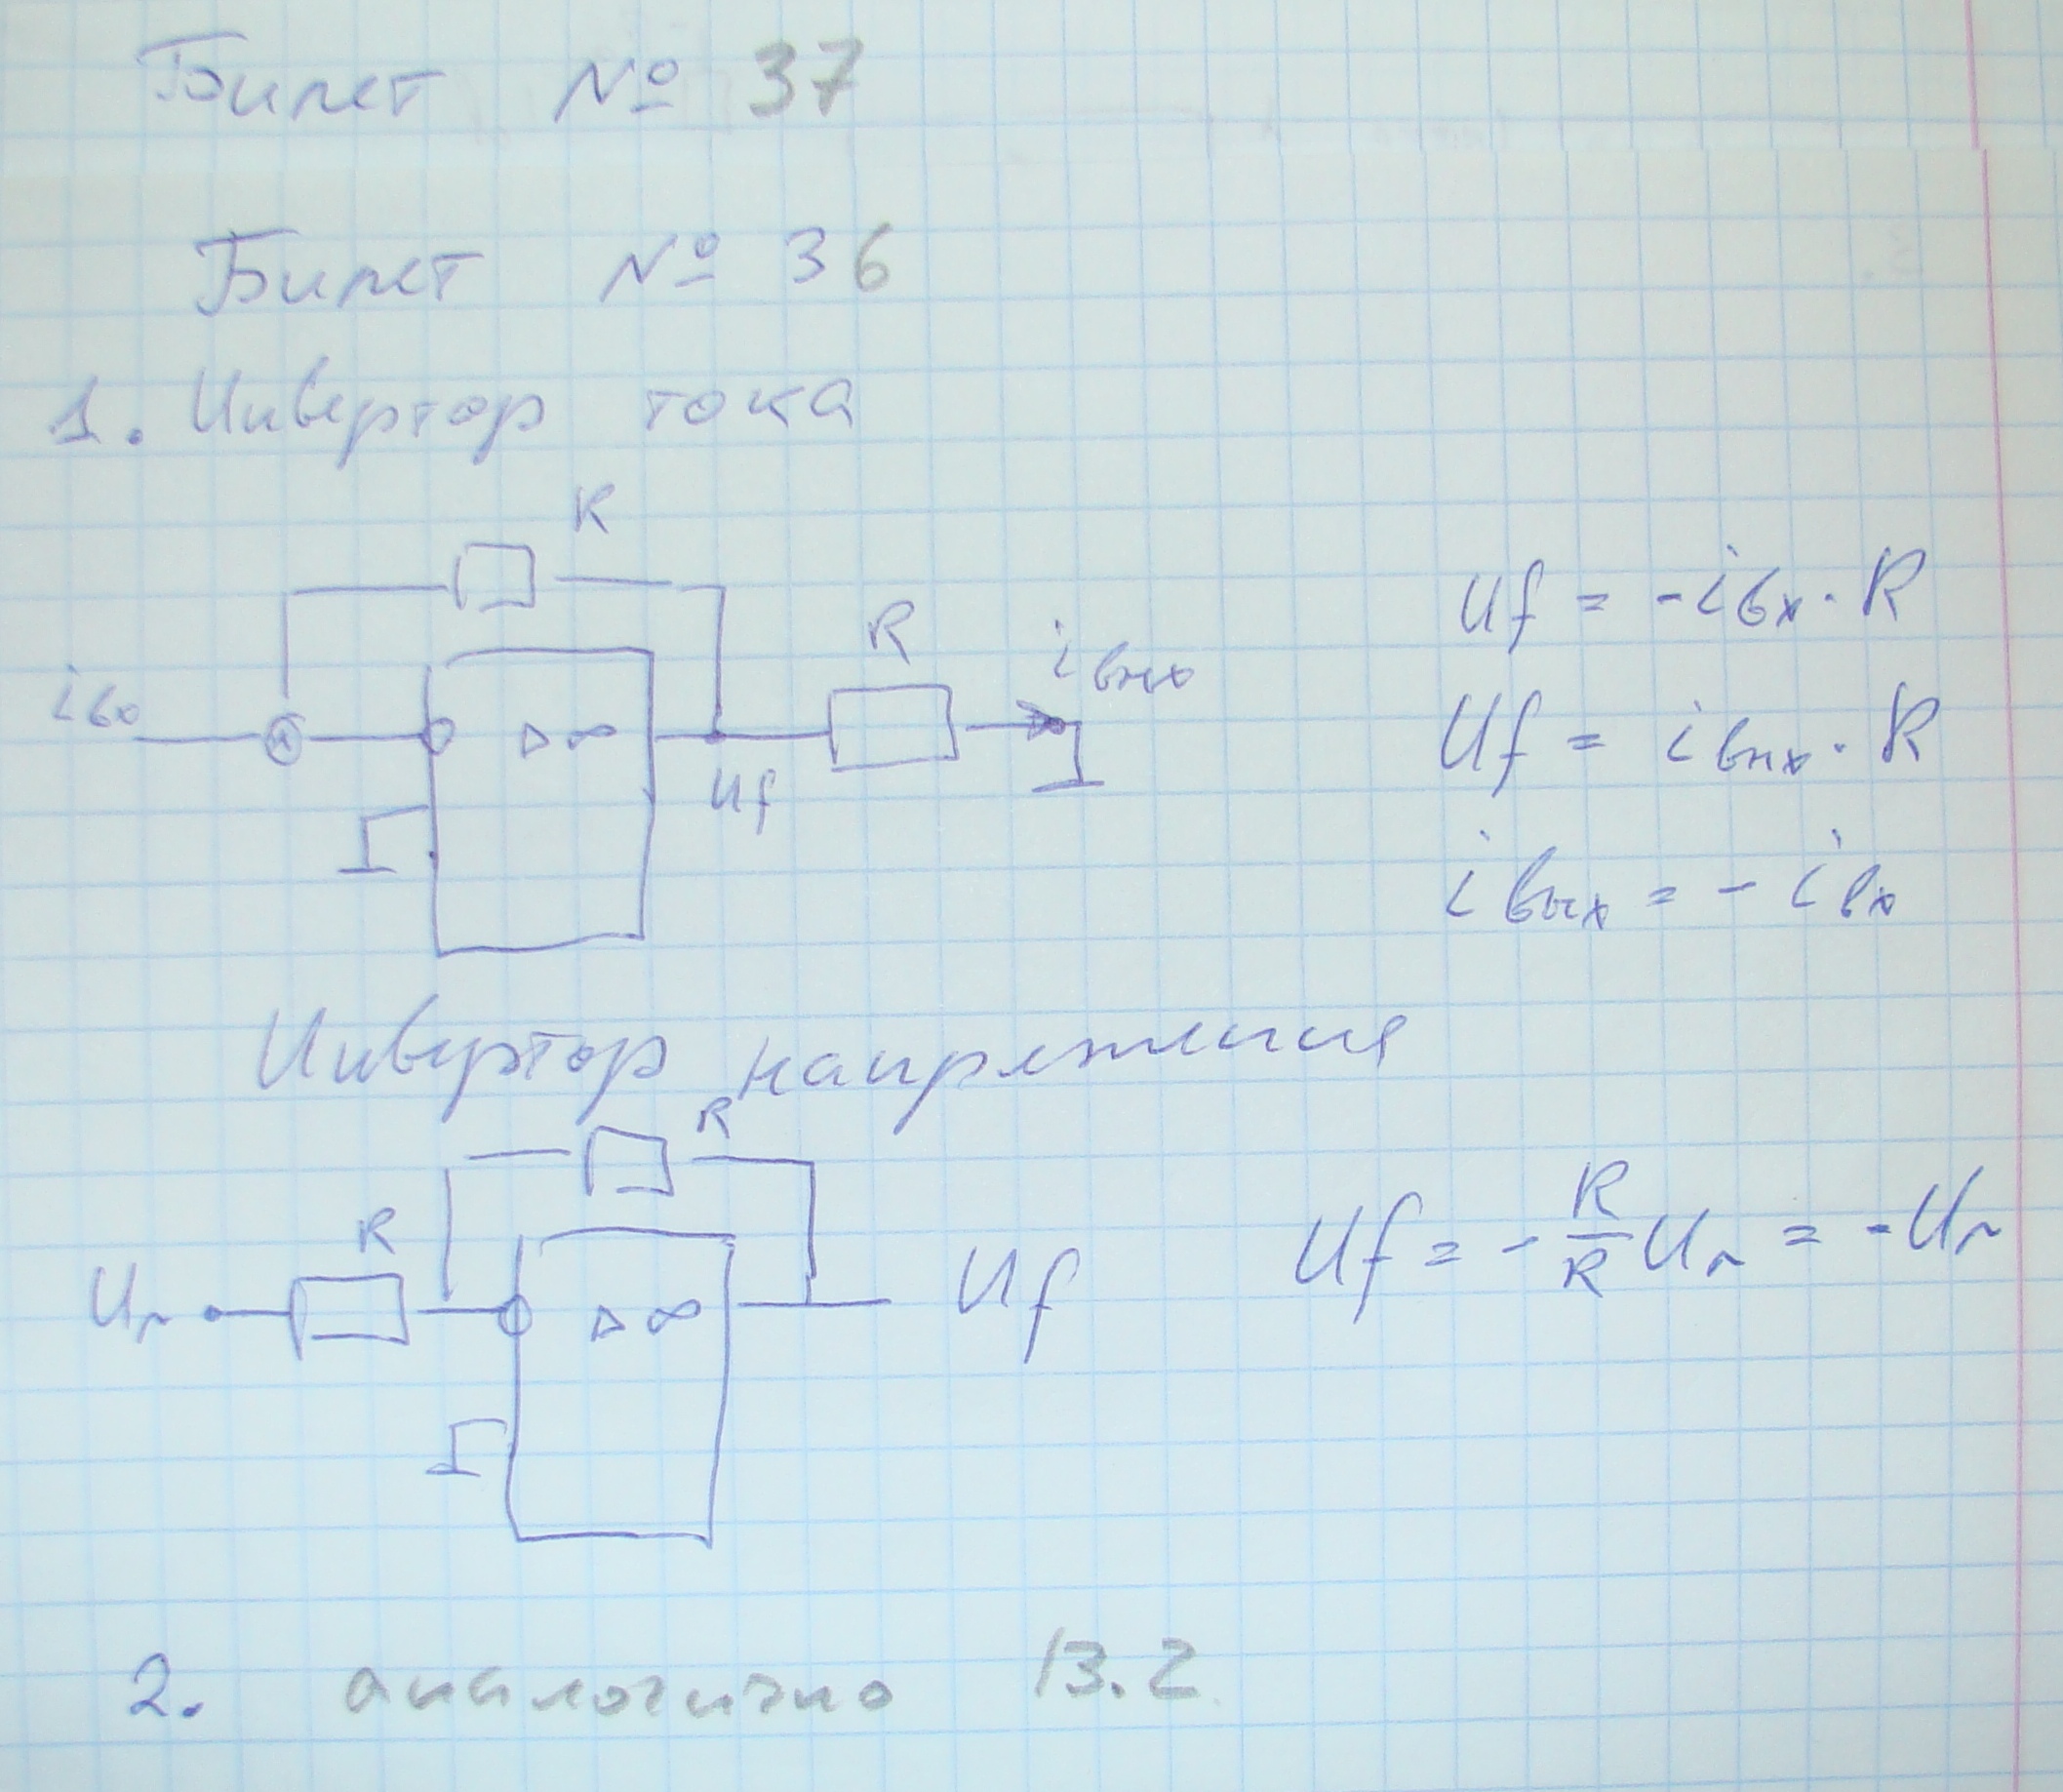 Билет № 37
Билет № 36
1. Инвертор тока
R
R
iвх
iвых
▷∞
Uf
Uf = -iвх · R
Uf = iвых · R
iвых = - iвх
Инвертор напряжения
R
R
Ur
▷∞
Uf
Uf = - R/R Ur = -Ur
2. аналогично 13.2